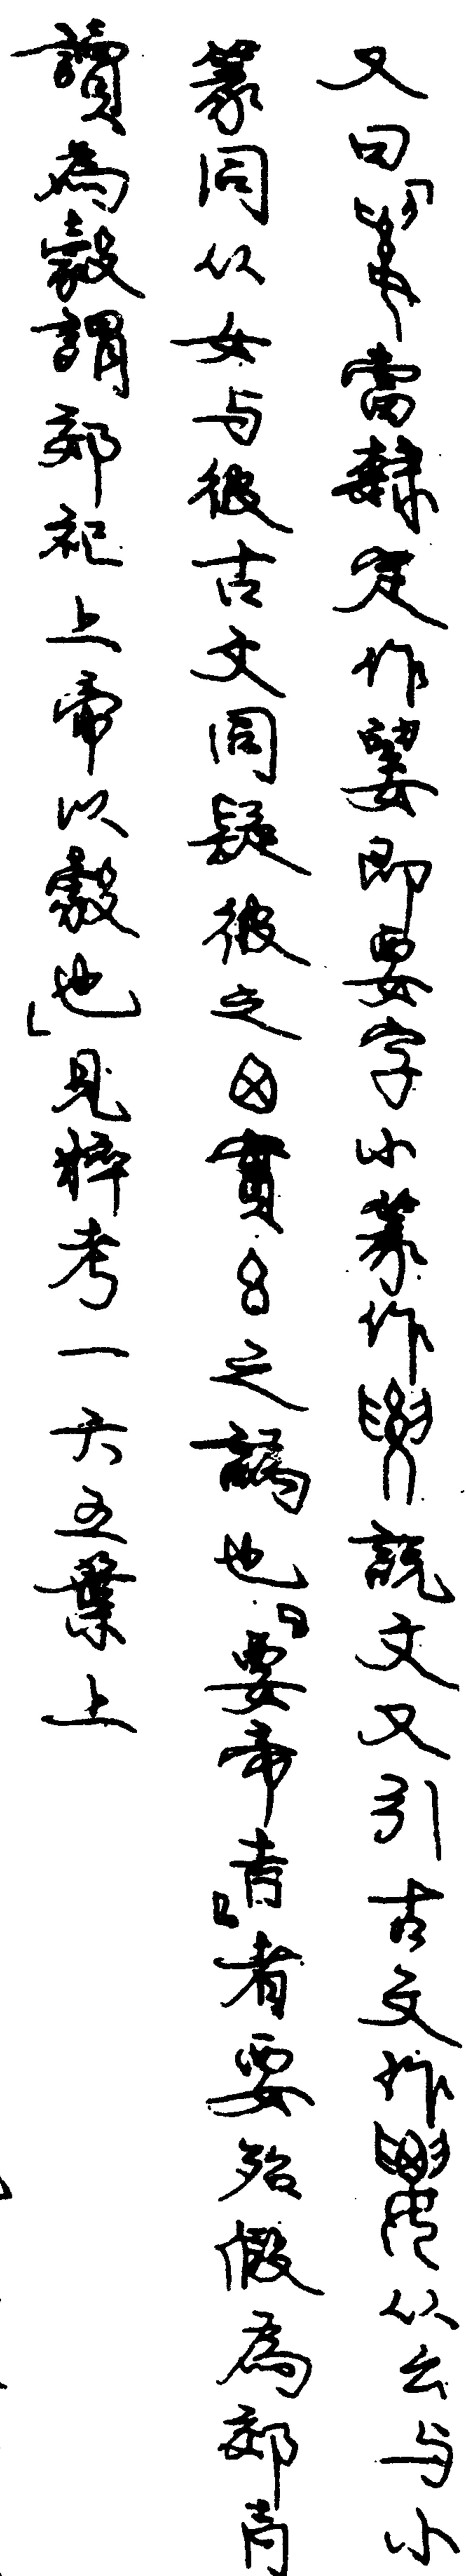 又曰「當隸定作䙅即要字小篆作說文又引古文作从幺与小
篆同从女与彼古文同疑彼之實之譌也『要帝𣫭』者要殆假為郊
讀為㱿謂郊祀上帝以㱿也」見粹考一六五葉上